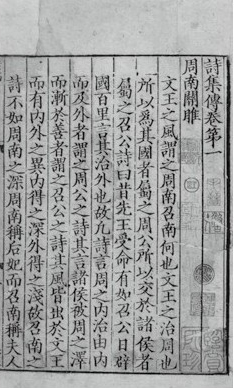 詩集傳卷第一
周南關雎
文王之風謂之周南召南何也文王之治周也
所以為其國者屬之周公所以交於諸侯者
屬之召公詩曰昔先王受命有如召公日辟
國百里言其治外也故凡詩言周之內治由內
而及外者謂之周公之詩其言諸侯被周之澤
而漸於善者謂之召公之詩其風皆出於文王
而有內外之異內得之深外得之淺故召南之
詩不如周南之深周南稱后妃而召南稱夫人